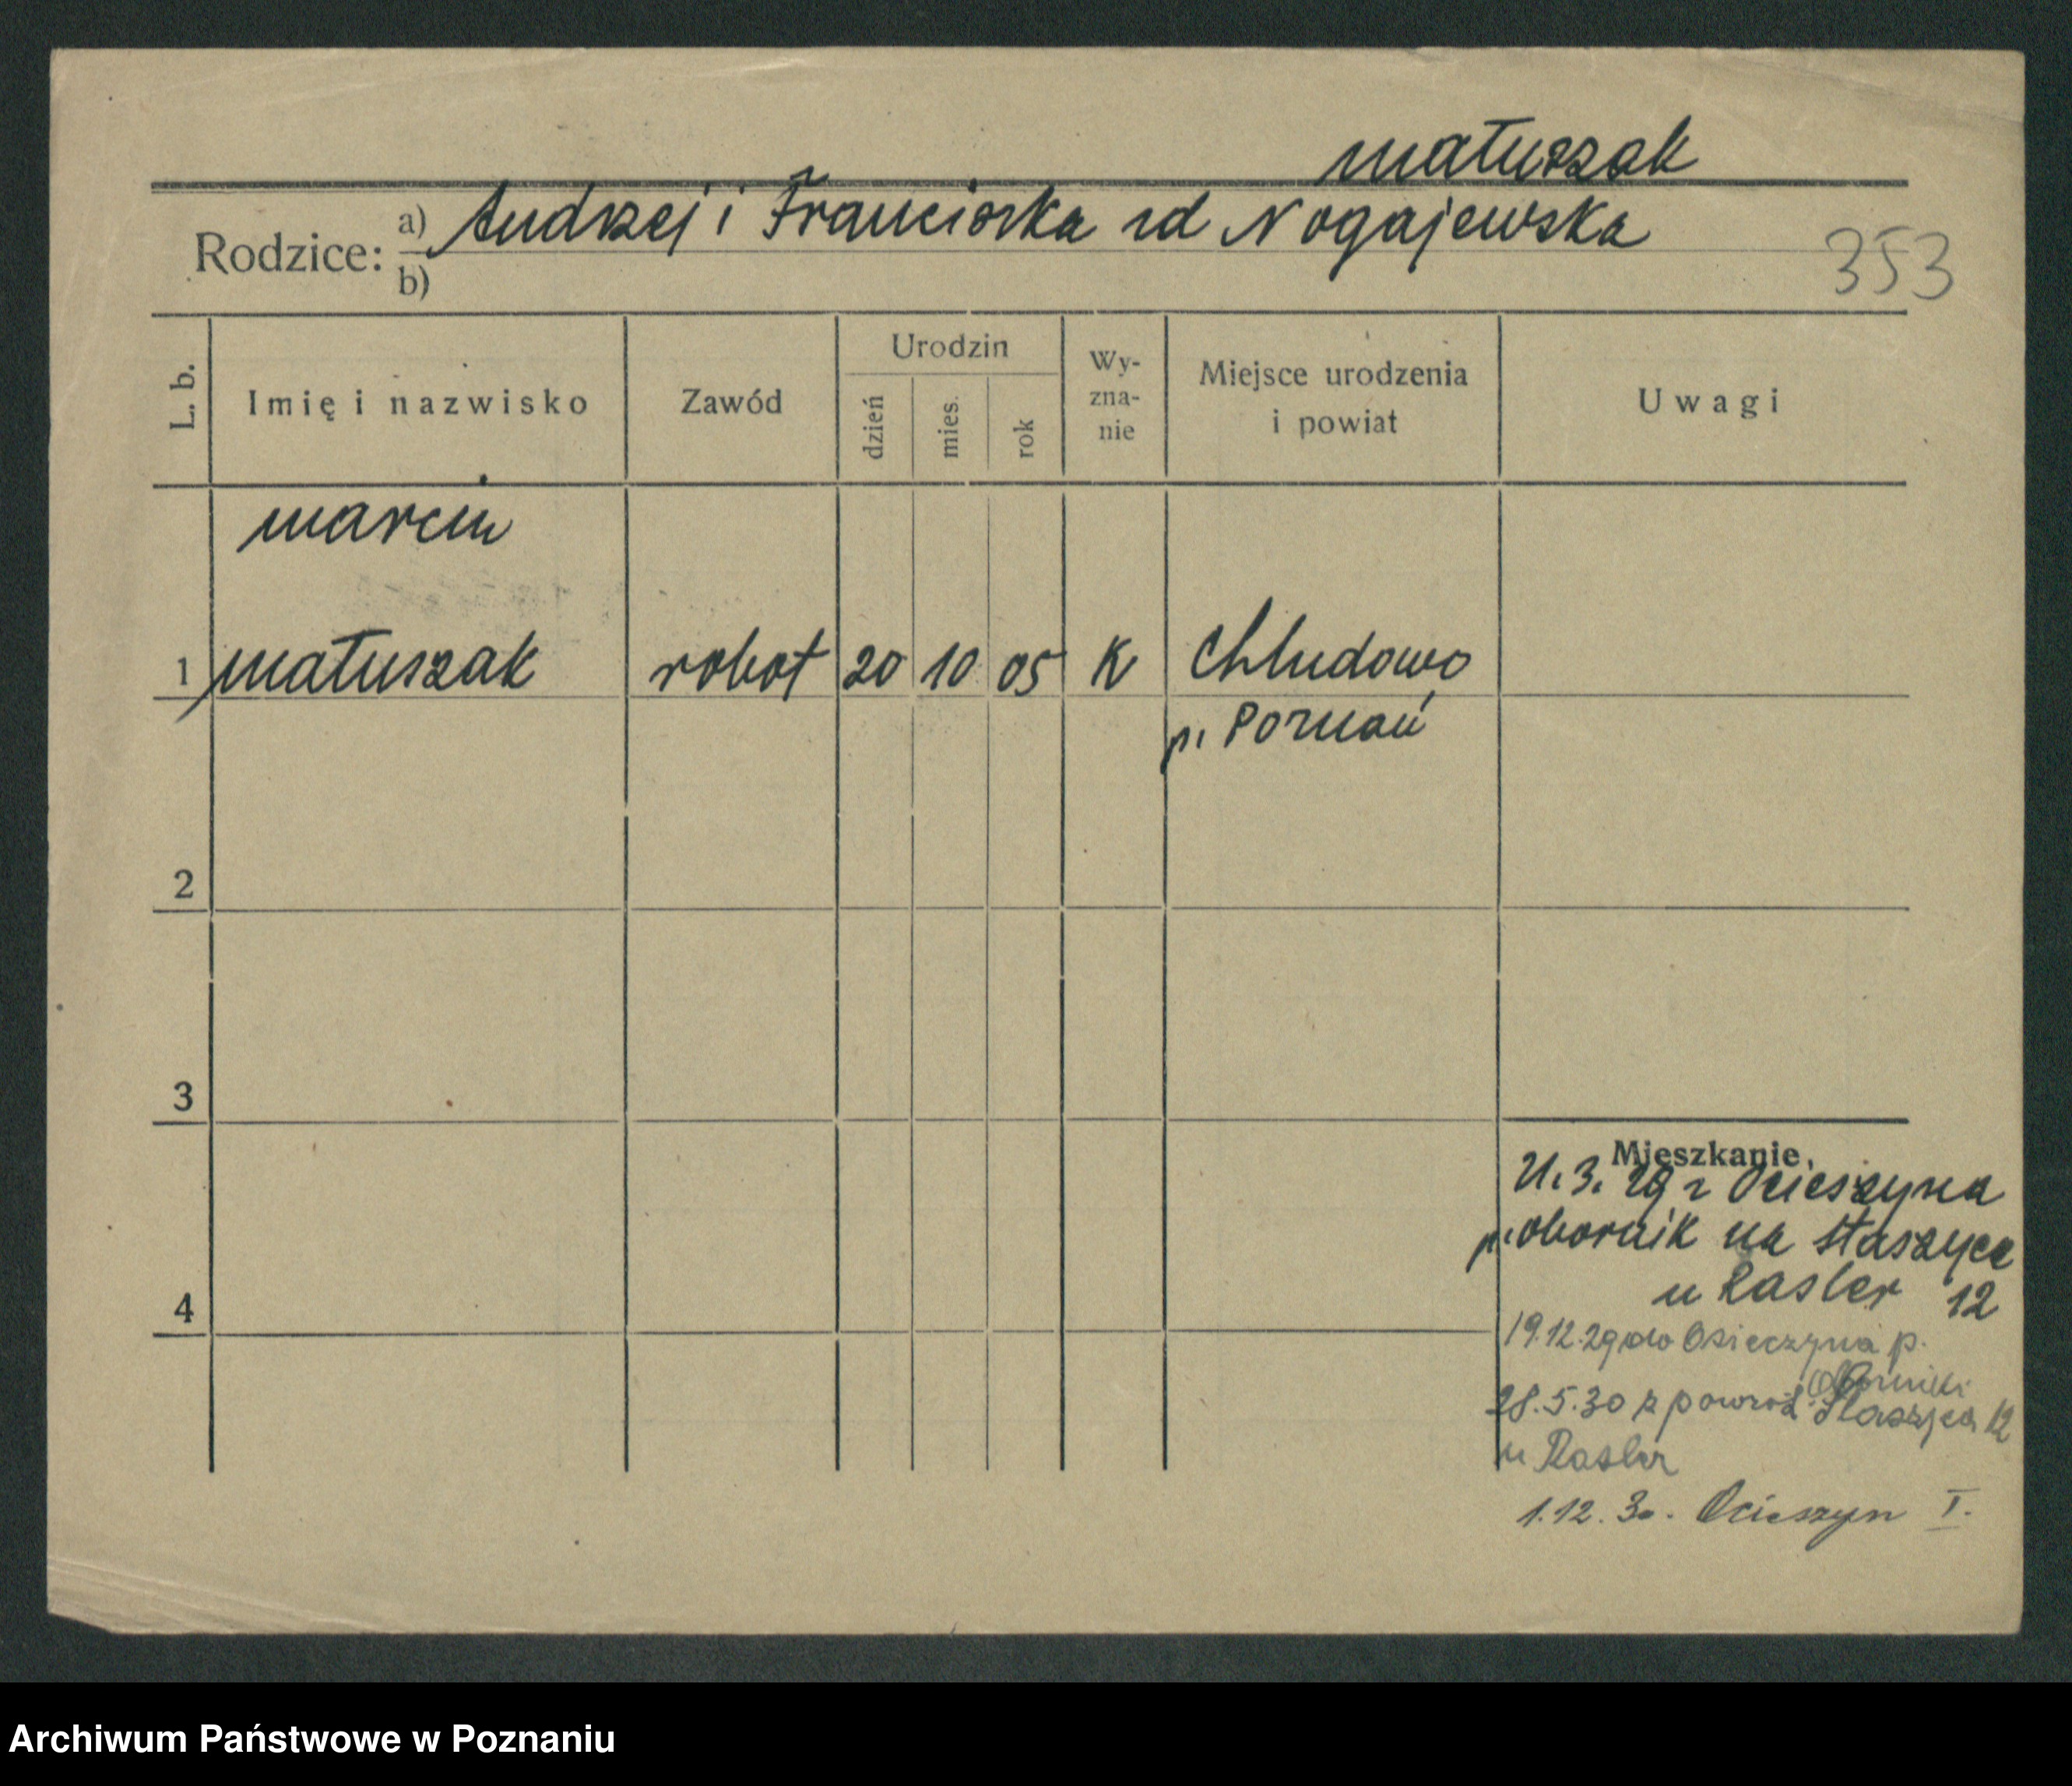 Matuszak
Rodzice: a) Andrzej i Franciszka zd Nogajewska
b)
353
L. b.
Imię i nazwisko
Zawód
Urodzin
dzień
mies.
rok
Wy-
zna-
nie
Miejsce urodzenia
i powiat
Uwagi
Marcin
1 Matuszak robot 20 10 05 K Chludowo
p. Poznań
2
3
4
Mieszkanie.
21.3.29 z Ocieszyna
p. obornik na Staszyca
u Rasler 12
19.12.29 do Osieczyna p.
Oborniki
28.5.30 z powrot Staszyca 12
u Rasler
1.12.30. Ocieszyn I.
Archiwum Państwowe w Poznaniu